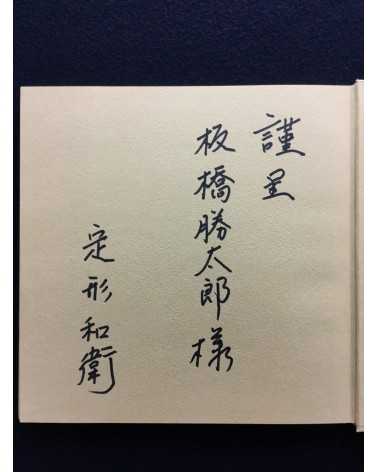 謹呈
板橋勝太郎様
定形和衛